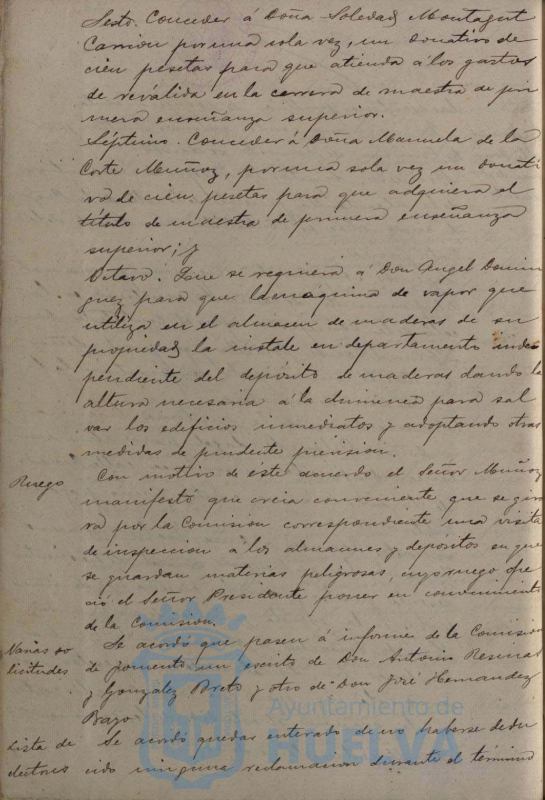 Sesto. Conceder á Doña Soledad Montagut
Carrion por una sola vez, un donativo de
cien pesetas para que atienda á los gastos
de reválida en la carrera de maestra de pri
mera enseñanza superior.
Séptimo. Conceder á Doña Manuela de la
Corte Muñoz, por una sola vez un donati
vo de cien pesetas para que adquiera el
título de maestra de primera enseñanza
superior; y
Octavo. Que se requiera á Don Angel Domin
guez para que la máquina de vapor que
utiliza en el almacen de maderas de su
propiedad la instale en departamento inde
pendiente del depósito de maderas dando la
altura necesaria á la chimenea para sal
var los edificios inmediatos y adoptando otras
medidas de prudente prevision.
Ruego Con motivo de éste acuerdo el Señor Muñoz
manifestó que creia conveniente que se gira
ra por la Comision correspondiente una visita
de inspeccion á los almacenes y depósitos en que
se guardan materias peligrosas, cuyo ruego ofre
ció el Señor Presidente poner en conocimiento
de la Comision.
Varias so
licitudes
Se acordó que pasen á informe de la Comision
de fomento un escrito de Don Antonio
y Gonzalez Prieto y otro de Don José Hernandez
Lista de
electores
Se acordó quedar enterado de no haberse dedu
cido ninguna reclamacion durante el término
Ayuntamiento de
HUELVA